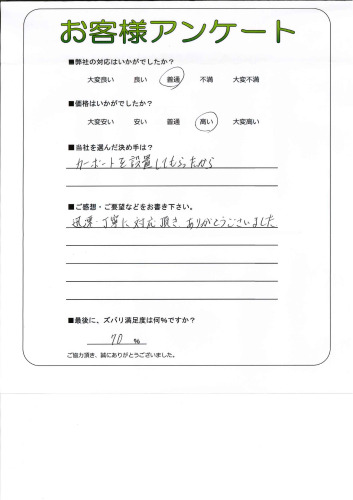 お客様アンケート
■弊社の対応はいかがでしたか?
大変良い 良い 普通 不満 大変不満
■価格はいかがでしたか?
大変安い 安い 普通 高い 大変高い
■当社を選んだ決め手は?
カーポートを設置してもらったから
■ご感想・ご要望などをお書き下さい。
迅速・丁寧に対応頂き、ありがとうございました
■最後に、ズバリ満足度は何%ですか?
70 %
ご協力頂き、誠にありがとうございました。